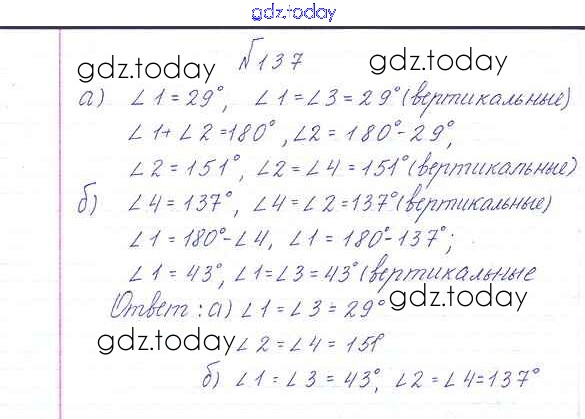 gdz.today
№137
gdz.today gdz.today
а) ∠1 = 29°, ∠1 = ∠3 = 29° (вертикальные)
∠1 + ∠2 = 180°, ∠2 = 180° - 29°,
∠2 = 151°, ∠2 = ∠4 = 151° (вертикальные)
б) ∠4 = 137°, ∠4 = ∠2 = 137° (вертикальные)
∠1 = 180° - ∠4, ∠1 = 180° - 137°;
∠1 = 43°, ∠1 = ∠3 = 43° (вертикальные
Ответ: а) ∠1 = ∠3 = 29° gdz.today
gdz.today ∠2 = ∠4 = 151°
б) ∠1 = ∠3 = 43°, ∠2 = ∠4 = 137°